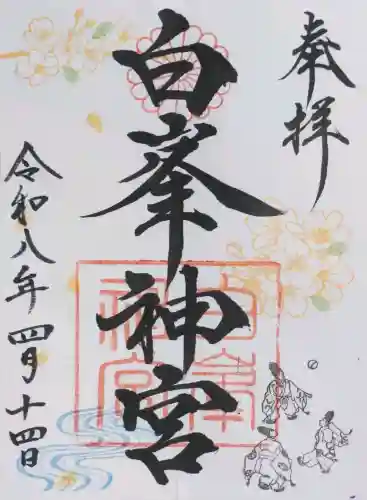 奉拝
白峯神宮
令和八年四月十四日
白峯
神宮